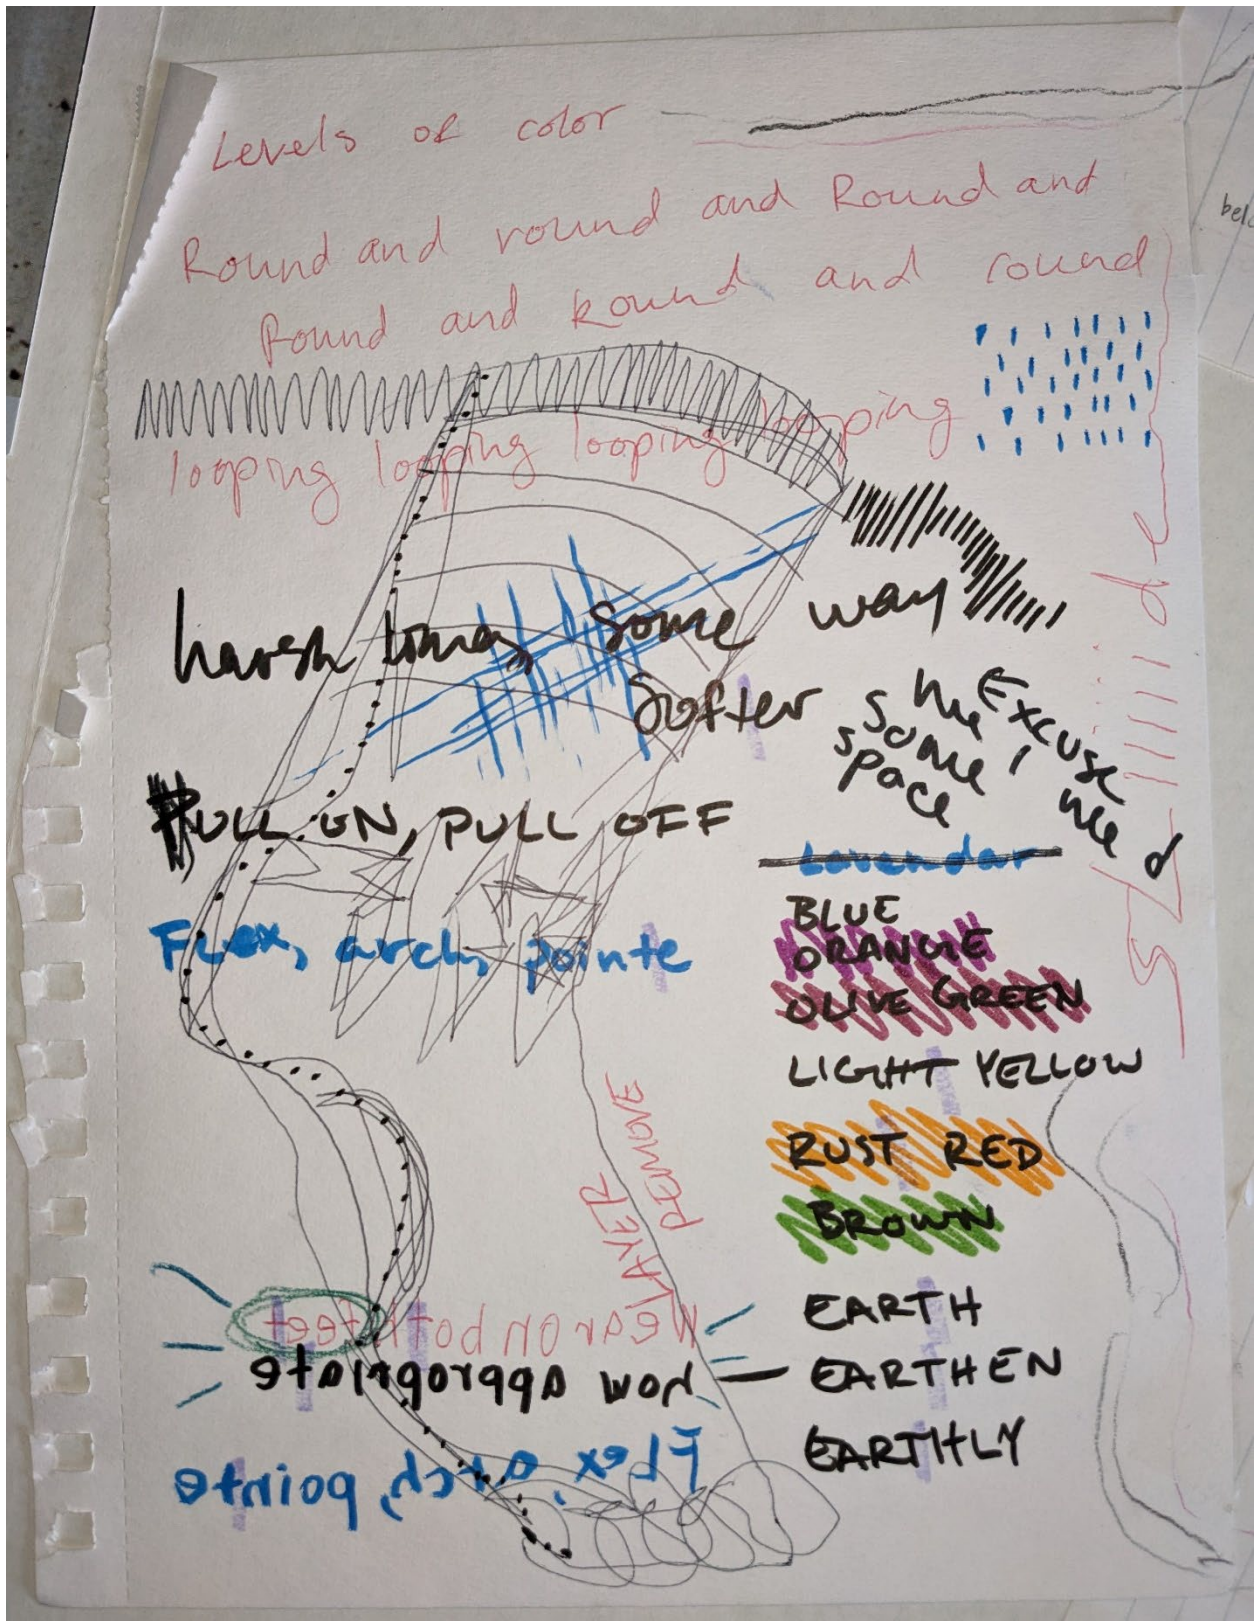 Levels of color
Round and round and Round and
Round and Round and round
looping looping looping looping
bel
harsh lines, some way
softer
Excuse
me, I need
some
space
Sliiiiide
PULL ON, PULL OFF
Lavendar
Flex, arch, pointe
BLUE
ORANGE
OLIVE GREEN
LIGHT YELLOW
RUST RED
BROWN
LAYER
REMOVE
Wear on both feet
now appropriate
Flex, arch, pointe
EARTH
EARTHEN
EARTHLY